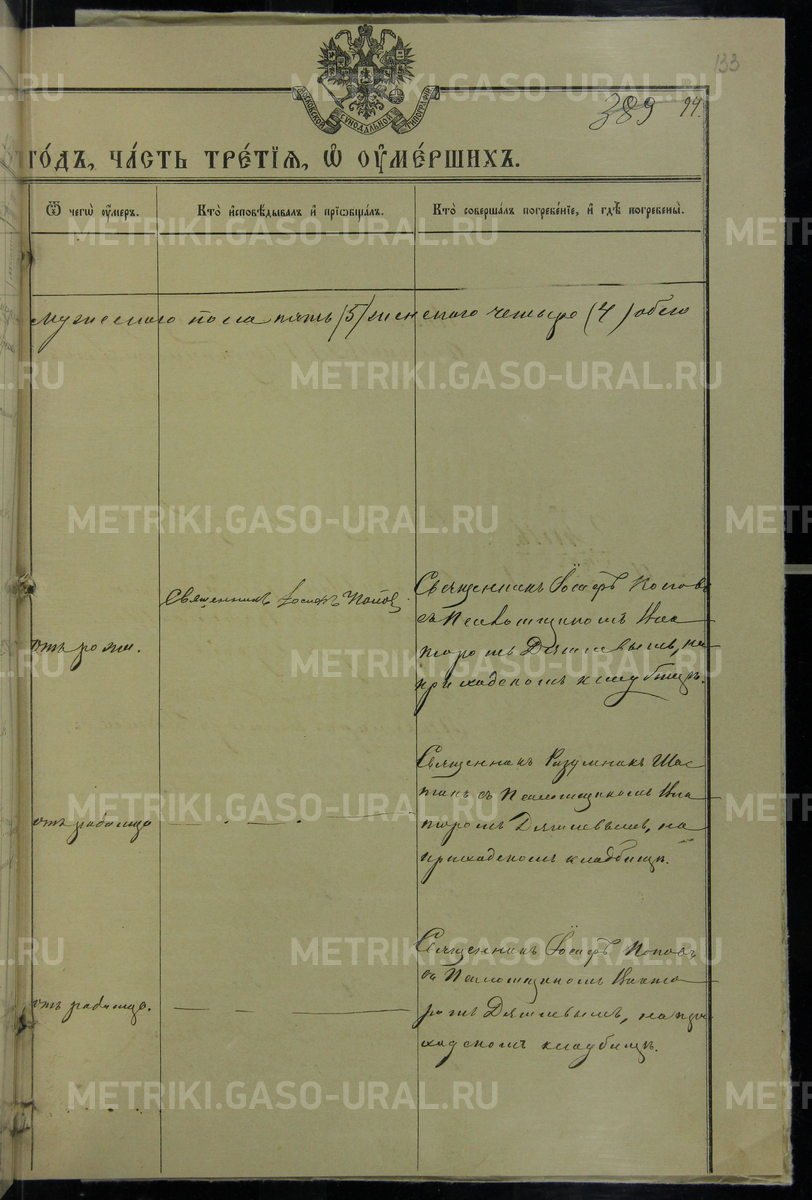 133
389 94.
МОСКОВСКОЙ СѴНОДАЛЬНОЙ ТИПОГРАФІИ
ГО́ДЪ, ЧА́СТЬ ТРЕ́ТІѦ, Ѡ҆ ОУ҆МЕ́РШИХЪ.
Ѿ чегѡ̀ оу҆́меръ.
Кто̀ и҆сповѣ́дывалъ и҆ прїѡбща́лъ.
Кто̀ соверша́лъ погребе́нїе, и҆ гдѣ̀ погребены̀.
мужескаго пола пять (5) женскаго четыре (4) обего
отъ рожи.
Священникъ Іосифъ Попов
Священникъ Іосифъ Поповъ
съ Псаломщикомъ Вик
торомъ Дягилевымъ, на
приходскомъ кладбищѣ.
отъ родимца
Священникъ Разумникъ
съ Псаломщикомъ Вик
торомъ Дягилевымъ, на
приходскомъ кладбищѣ.
отъ родимца.
Священникъ Іосифъ Поповъ
съ Псаломщикомъ Викто
ромъ Дягилевымъ, на при
ходскомъ кладбищѣ.
METRIKI.GASO-URAL.RU